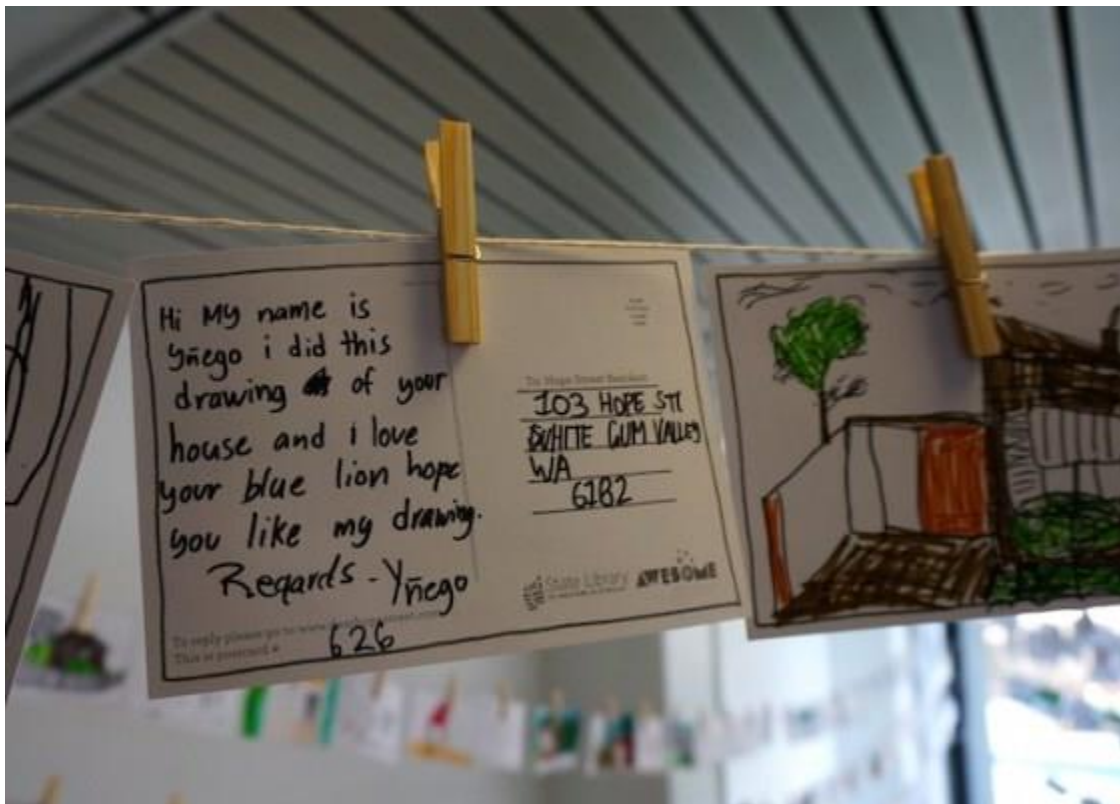 Hi My name is
Yñego i did this
drawing of your
house and i love
your blue lion hope
you like my drawing.
Regards - Yñego
626
To reply please go to www.
This is postcard #
To: Hope Street Resident
103 HOPE ST
WHITE GUM VALLEY
WA
6182
State Library
AWESOME